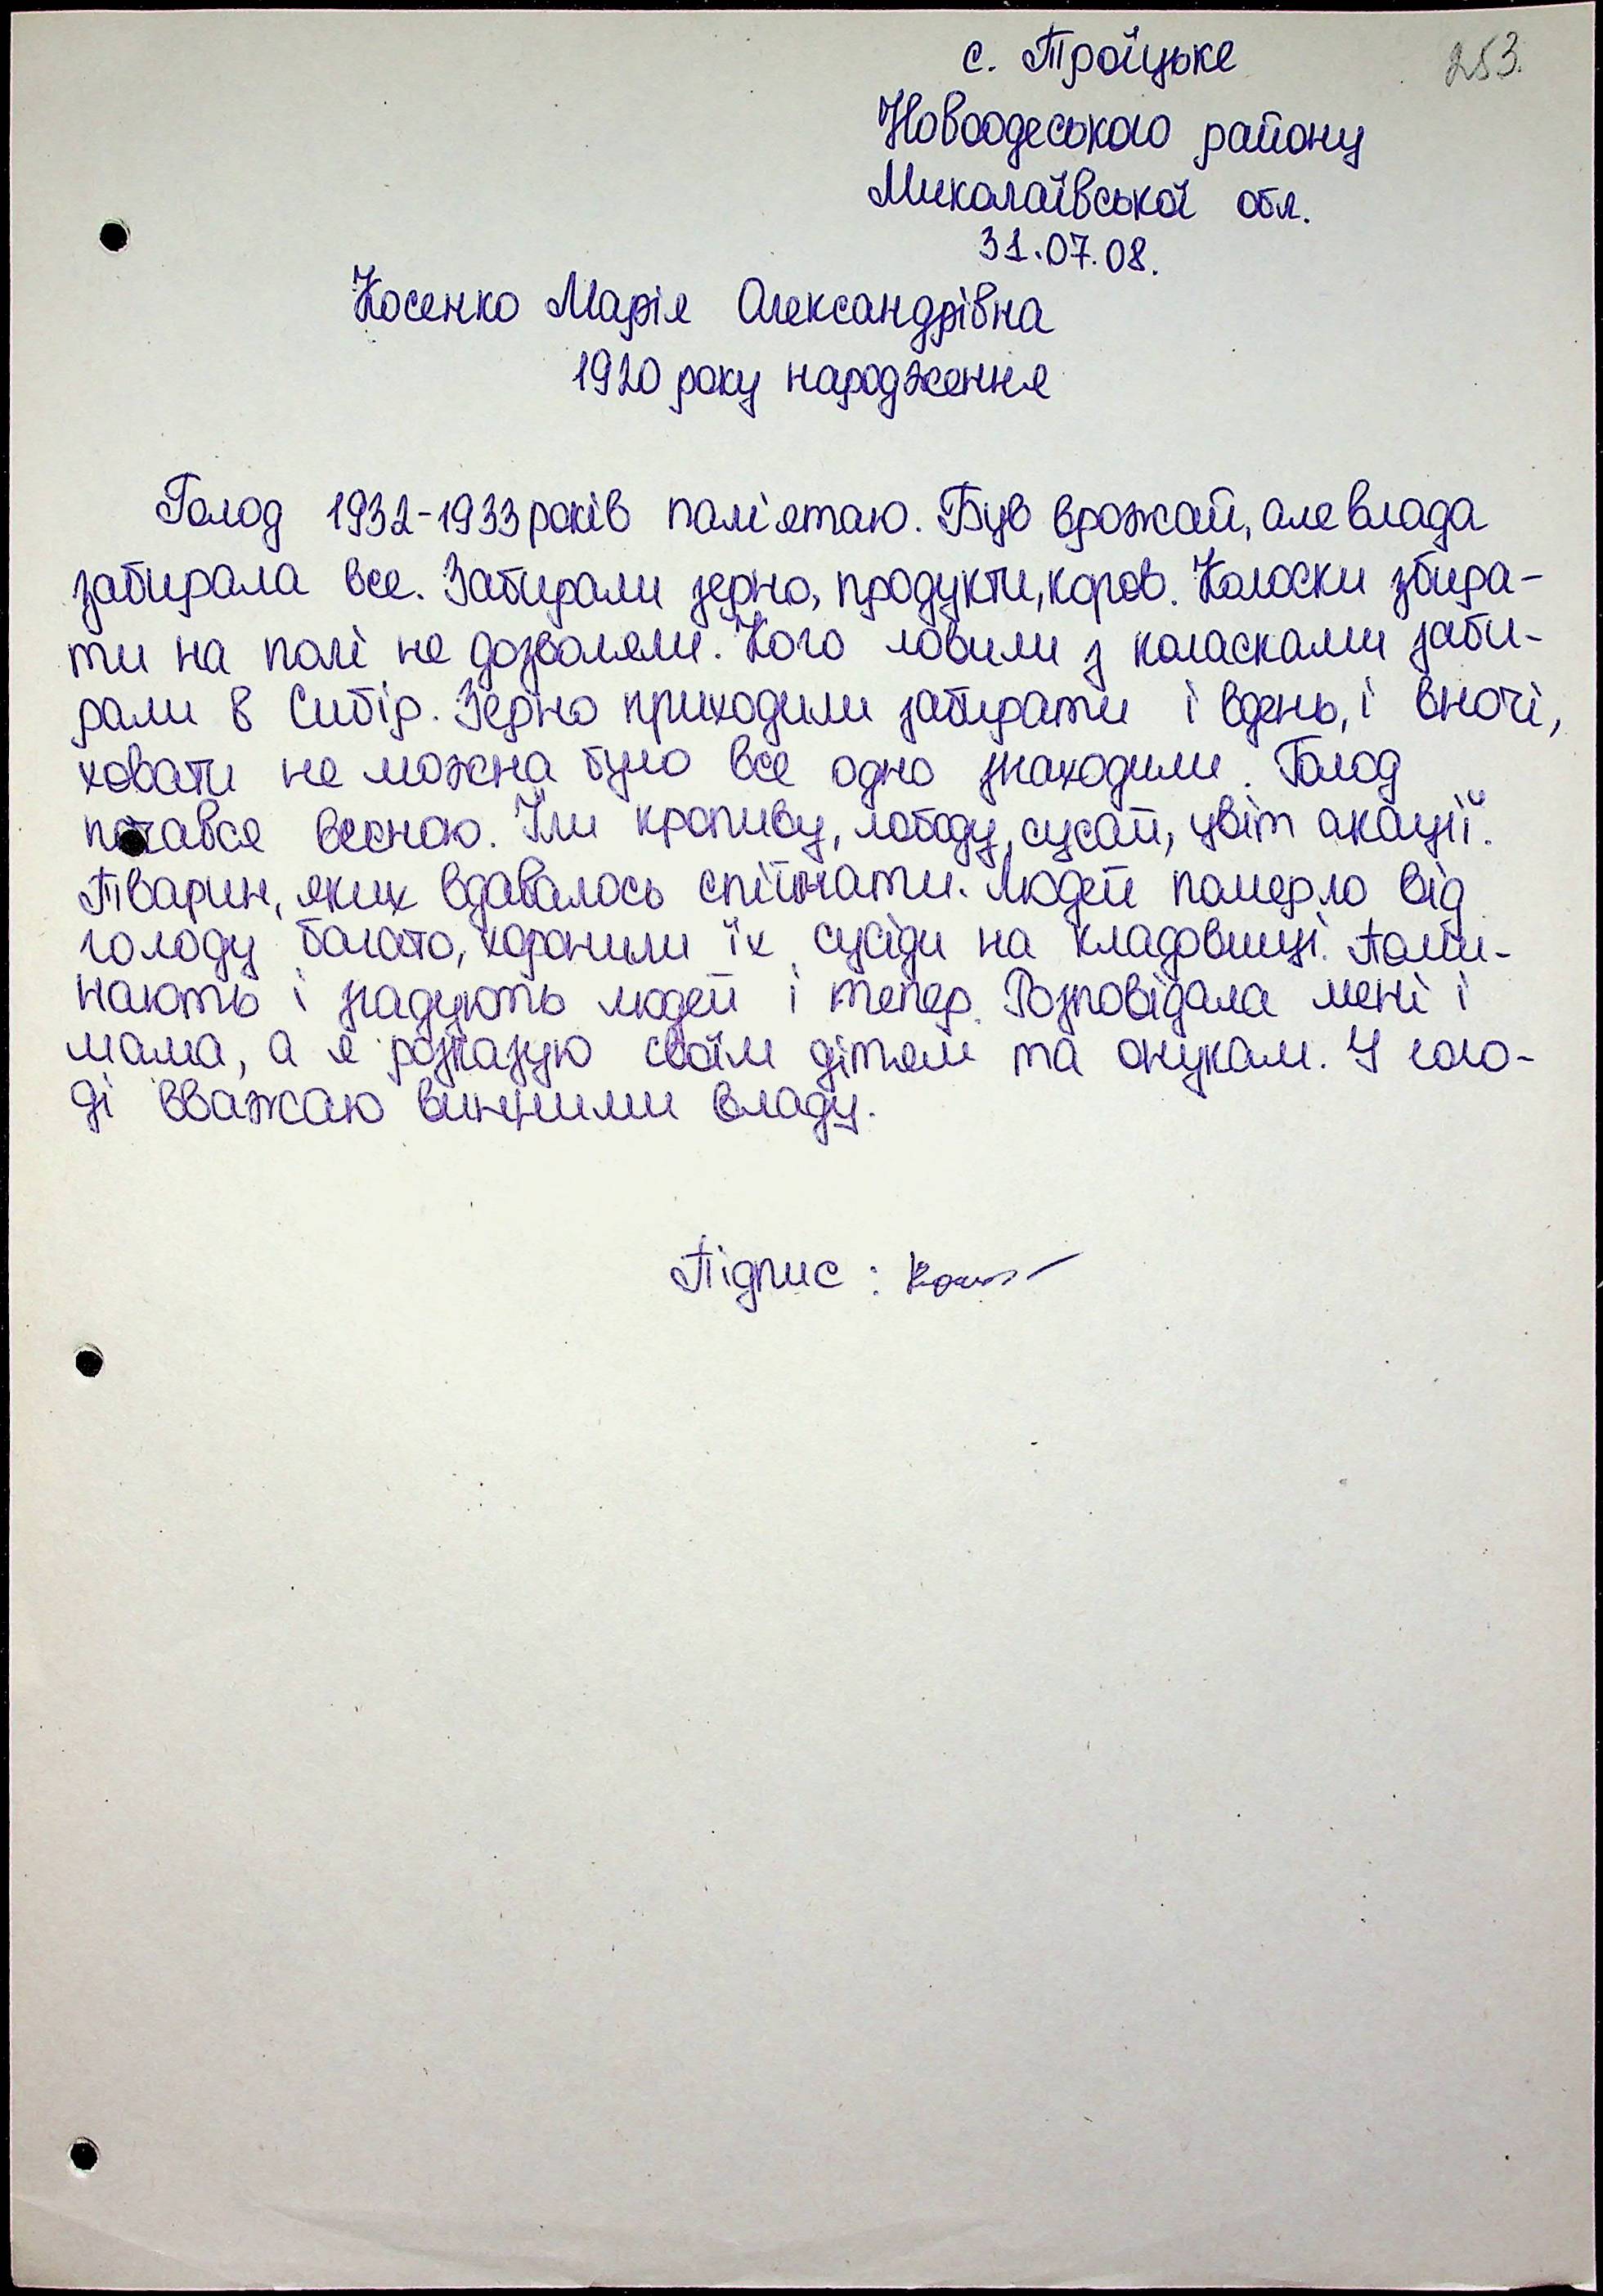 с. Троїцьке
253.
Новоодеського району
Миколаївської обл.
31.07.08.
Косенко Марія Олександрівна
1920 року народження
Голод 1932-1933 років пам'ятаю. Був врожай, але влада
забирала все. Забирали зерно, продукти, коров. Колоски збира-
ти на полі не дозволяли. Кого ловили з коласками заби-
рали в Сибір. Зерно приходили забирати і вдень, і вночі,
ховати не можна було все одно знаходили. Голод
почався весною. Їли кропиву, лободу, сусай, цвіт акації.
Тварин, яких вдавалось спіймати. Людей померло від
голоду багато, хоронили їх сусіди на кладовищі. Поми-
нають і згадують людей і тепер. Розповідала мені і
мама, а я розказую своїм дітям та онукам. У голо-
ді вважаю винними владу.
Підпис :